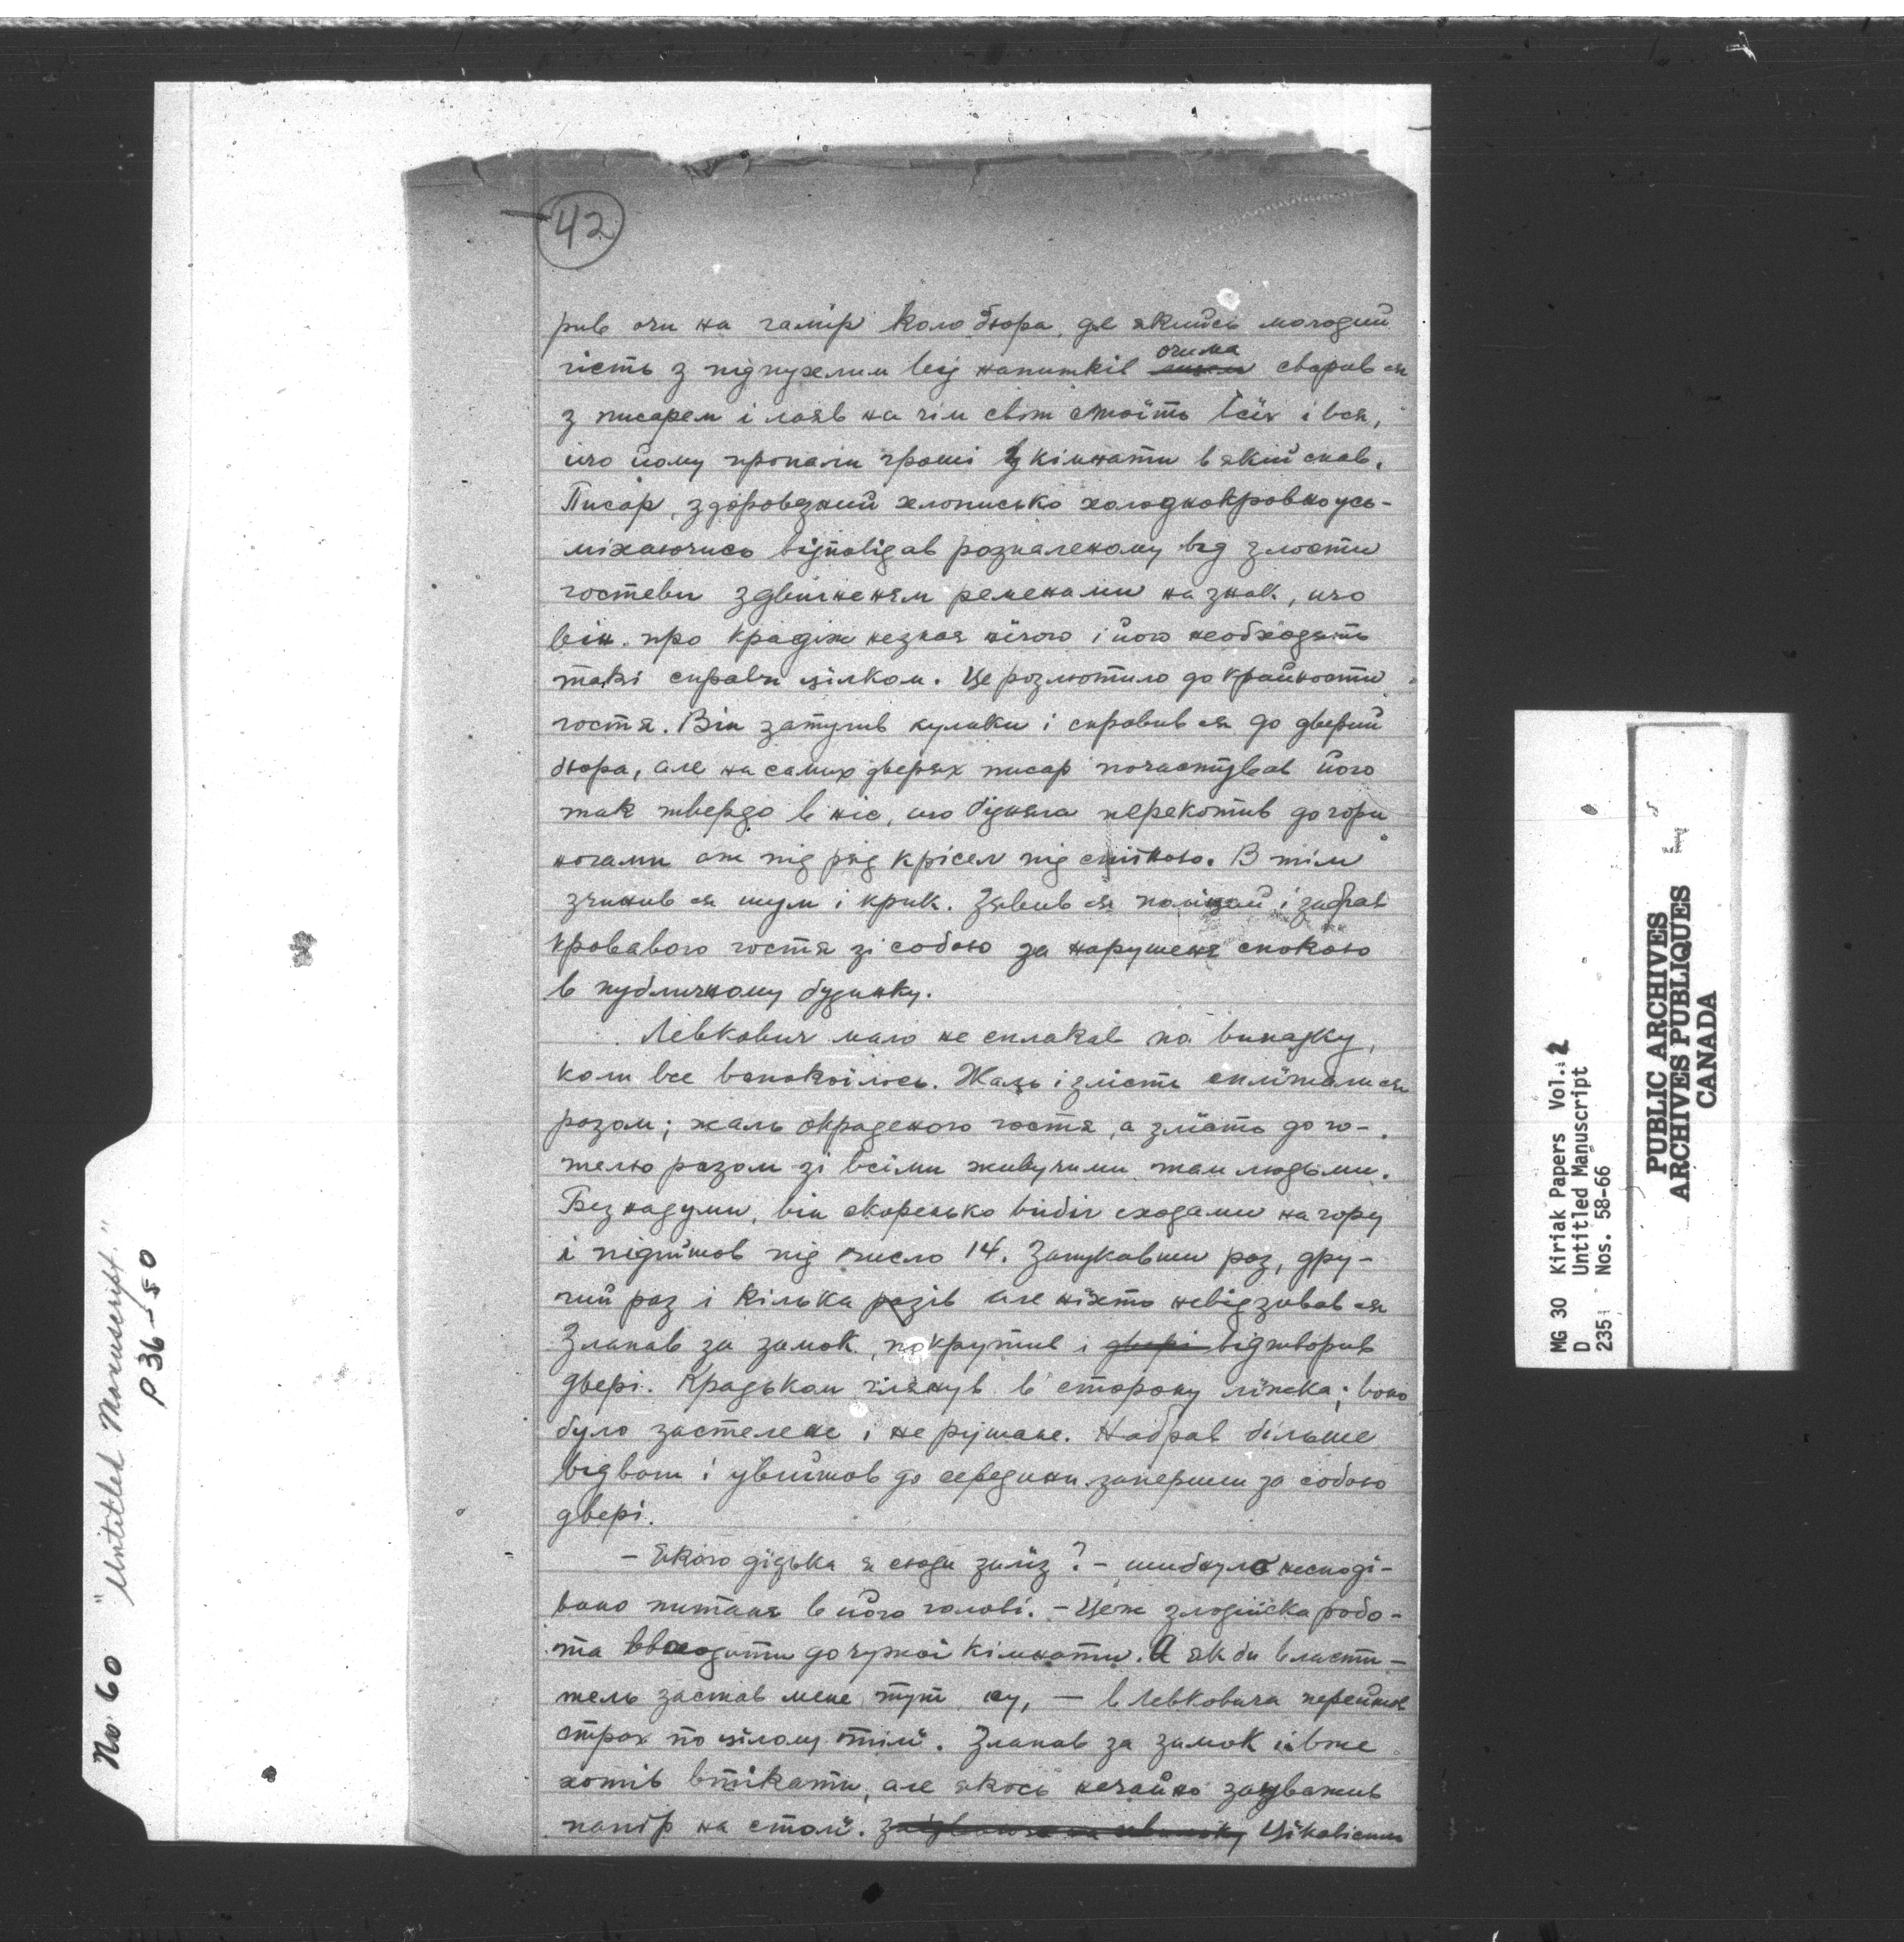 42
рив очи на гамір коло бюра, де якийсь молодий
гість з підпухлим від напитків очима сварив ся
з писарем і лаяв на чім світ стоїть всїх і вся,
що йому пропали гроші з кімнати в якій спав.
Писар, здоровезний хлописько холоднокровно усь-
міхаючись відповідав розпаленому від злости
гостеви здвигненям ременами на знак, що
він про крадіж незнає нічого і його необходять
такі справи цілком. Це розлютило до крайности
гостя. Він затулив кулаки і справив ся до дверий
бюра, але на самих дверях писар почастував його
так твердо в ніс, що бідняга перекотив догори
ногами аж під ряд крісел під стїною. В тім
зчинив ся шум і крик. Зявив ся поліцай і забрав
кровавого гостя зі собою за нарушеня спокою
в публичному будинку.
Левкович мало не сплакав по випадку,
коли все вспокоїлось. Жаль і злість сплїтали ся
разом; жаль окраденого гостя, а злїсть до го-
телю разом зі всіми живучими там людьми.
Без надуми, він скоренько вибіг сходами на гору
і підийшов під число 14. Запукавши раз, дру-
гий раз і кілька разів але ніхто невідзивав ся
Злапав за замок, покрутив і двері відтворив
двері. Крадьком глянув в сторону лїжка; воно
було застелене і не рушане. Набрав більше
відваги і увійшов до середини заперши за собою
двері.
– Якого дїдька я сюди залїз? – шибнуло несподі-
вано питаня в його голові. – Це ж злодїйска робо-
та входити до чужої кімнати. А як би власти-
тель застав мене тут ну, — в Левковича перейшов
страх по цілому тілї. Злапав за замок і вже
хотів втікати, але якось нечайно зауважив
папір на столї. Цїкавісти
No. 60 "Untitled Manuscript"
P 36–50
MG 30 Kiriak Papers Vol. 2
D Untitled Manuscript
235 Nos. 58-66
PUBLIC ARCHIVES
ARCHIVES PUBLIQUES
CANADA